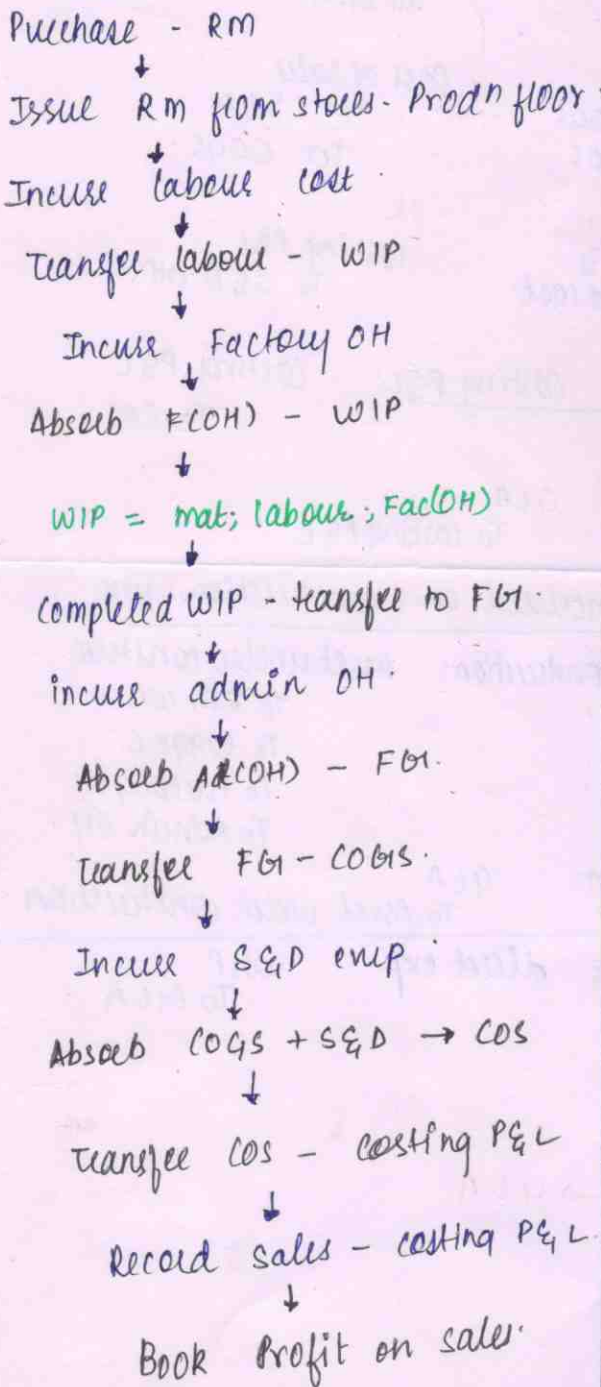 Purchase - RM
↓
Issue RM from stores - Prodn floor
↓
Incurr labour cost.
↓
Transfer labour - WIP
↓
Incurr Factory OH
↓
Absorb F(OH) - WIP
↓
WIP = mat; labour; Fac(OH)
↓
completed WIP - transfer to FG.
↓
incurr admin OH.
↓
Absorb Ad(OH) - FG.
↓
Transfer FG - COGS.
↓
Incurr S&D
↓
Absorb COGS + S&D → COS
↓
Transfer COS - costing P&L
↓
Record sales - costing P&L.
↓
Book Profit on sales.